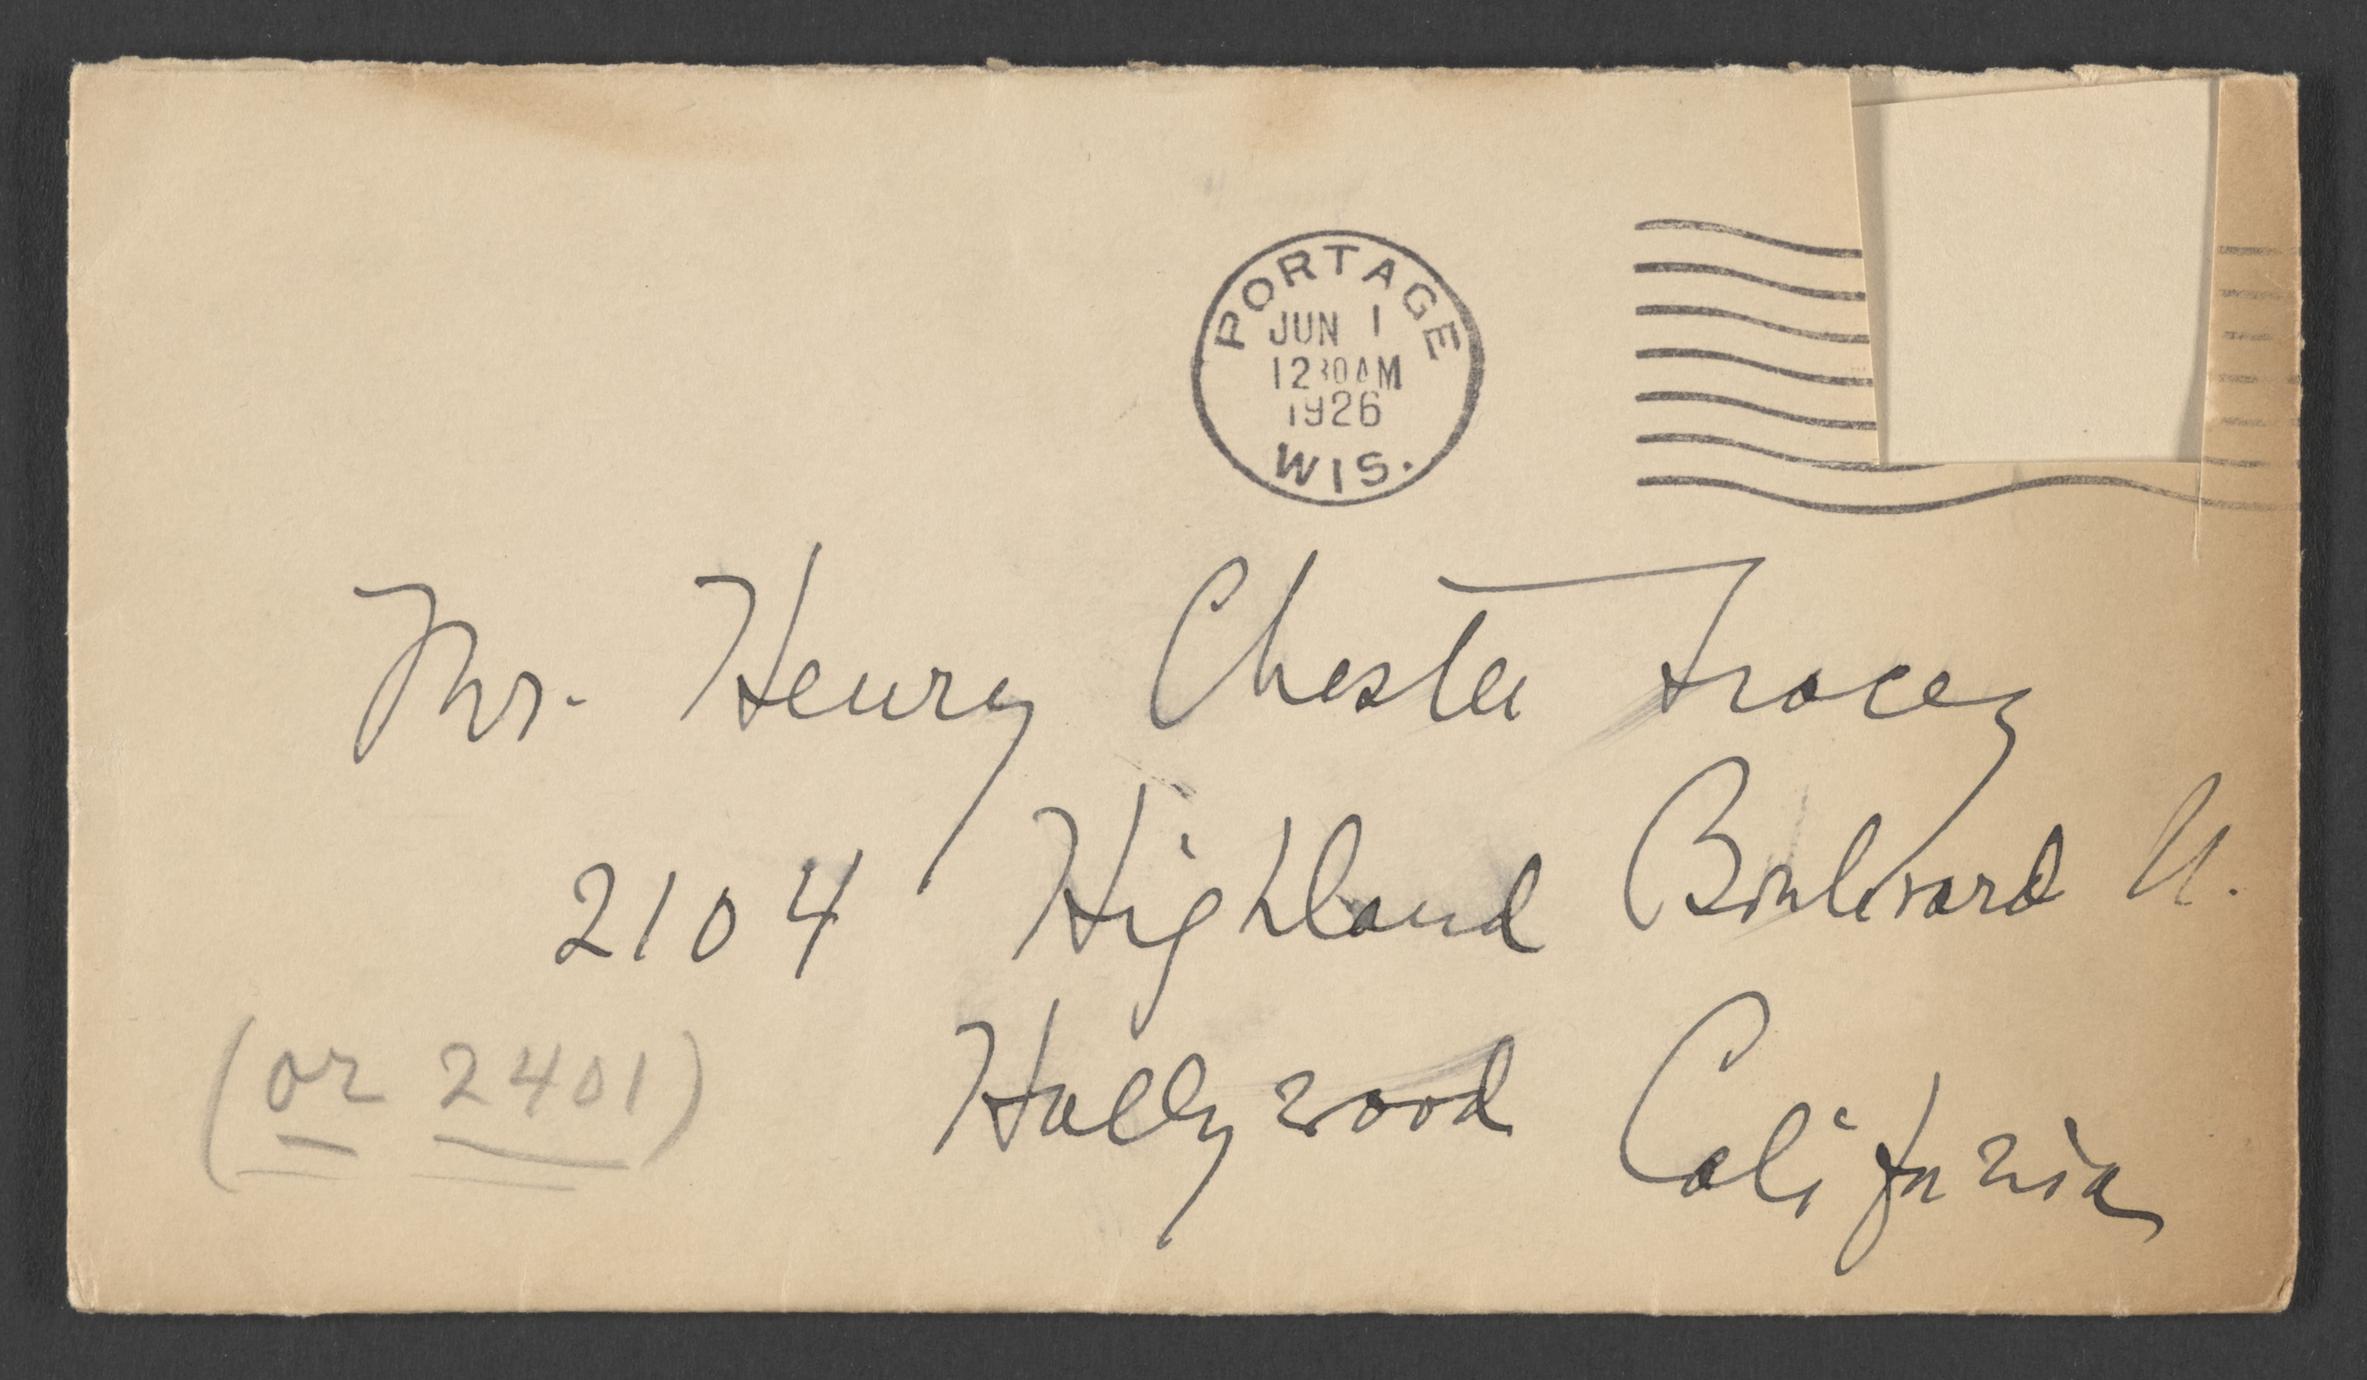 PORTAGE
JUN 1
1230AM
1926
WIS.
Mr. Henry Chester Tracey
2104 Highland Boulevard N.
(or 2401)
Hollywood California